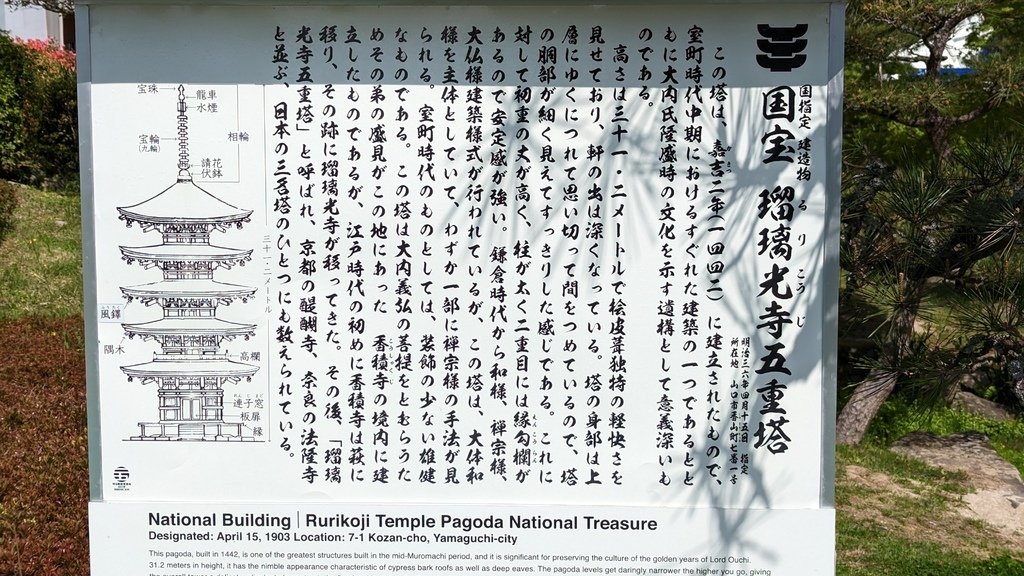 国指定 建造物
国宝 瑠璃光寺五重塔
るりこうじ
明治三六年四月十五日 指定
所在地 山口市香山町七番一号
この塔は、嘉吉二年(一四四二)に建立されたもので、
かきつ
室町時代中期におけるすぐれた建築の一つであるとと
もに大内氏隆盛時の文化を示す遺構として意義深いも
のである。
高さは三十一・二メートルで桧皮葺独特の軽快さを
見せており、軒の出は深くなっている。塔の身部は上
層にゆくにつれて思い切って間をつめているので、塔
の胴部が細く見えてすっきりした感じである。これに
対して初重の丈が高く、柱が太く二重目には縁勾欄が
えんこうらん
あるので安定感が強い。鎌倉時代から和様、禅宗様、
大仏様建築様式が行われているが、この塔は、大体和
様を主体としていて、わずか一部に禅宗様の手法が見
られる。室町時代のものとしては、装飾の少ない雄健
なものである。この塔は大内義弘の菩提をとむらうた
めその弟の盛見がこの地にあった香積寺の境内に建
立したものであるが、江戸時代の初めに香積寺は萩に
移り、その跡に瑠璃光寺が移ってきた。その後、「瑠璃
光寺五重塔」と呼ばれ、京都の醍醐寺、奈良の法隆寺
と並ぶ、日本の三名塔のひとつにも数えられている。
宝珠
龍車
水煙
相輪
宝輪
(九輪)
請花
伏鉢
三十一・二メートル
風鐸
隅木
高欄
連子窓
板扉
縁
National Building | Rurikoji Temple Pagoda National Treasure
Designated: April 15, 1903 Location: 7-1 Kozan-cho, Yamaguchi-city
This pagoda, built in 1442, is one of the greatest structures built in the mid-Muromachi period, and it is significant for preserving the culture of the golden years of Lord Ouchi.
31.2 meters in height, it has the nimble appearance characteristic of cypress bark roofs as well as deep eaves. The pagoda levels get daringly narrower the higher you go, giving